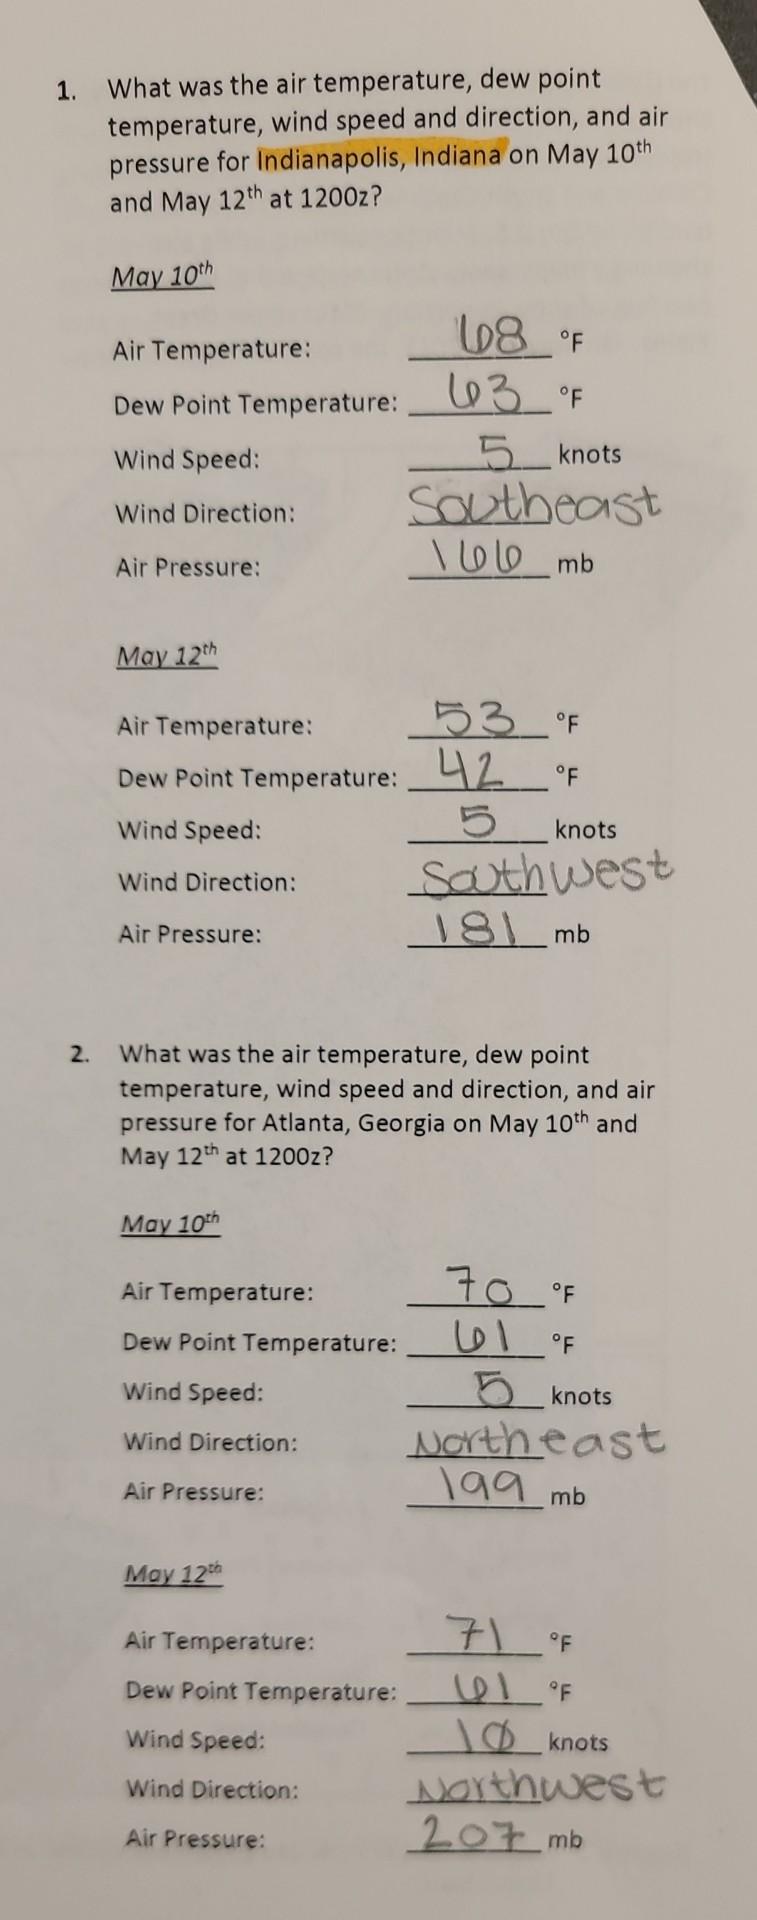 1. What was the air temperature, dew point
temperature, wind speed and direction, and air
pressure for Indianapolis, Indiana on May 10th
and May 12th at 1200z?
May 10th
Air Temperature: 68 °F
Dew Point Temperature: 63 °F
Wind Speed: 5 knots
Wind Direction: Southeast
Air Pressure: 166 mb
May 12th
Air Temperature: 53 °F
Dew Point Temperature: 42 °F
Wind Speed: 5 knots
Wind Direction: Southwest
Air Pressure: 181 mb
2. What was the air temperature, dew point
temperature, wind speed and direction, and air
pressure for Atlanta, Georgia on May 10th and
May 12th at 1200z?
May 10th
Air Temperature: 70 °F
Dew Point Temperature: 61 °F
Wind Speed: 5 knots
Wind Direction: Northeast
Air Pressure: 199 mb
May 12th
Air Temperature: 71 °F
Dew Point Temperature: 61 °F
Wind Speed: 10 knots
Wind Direction: Northwest
Air Pressure: 207 mb